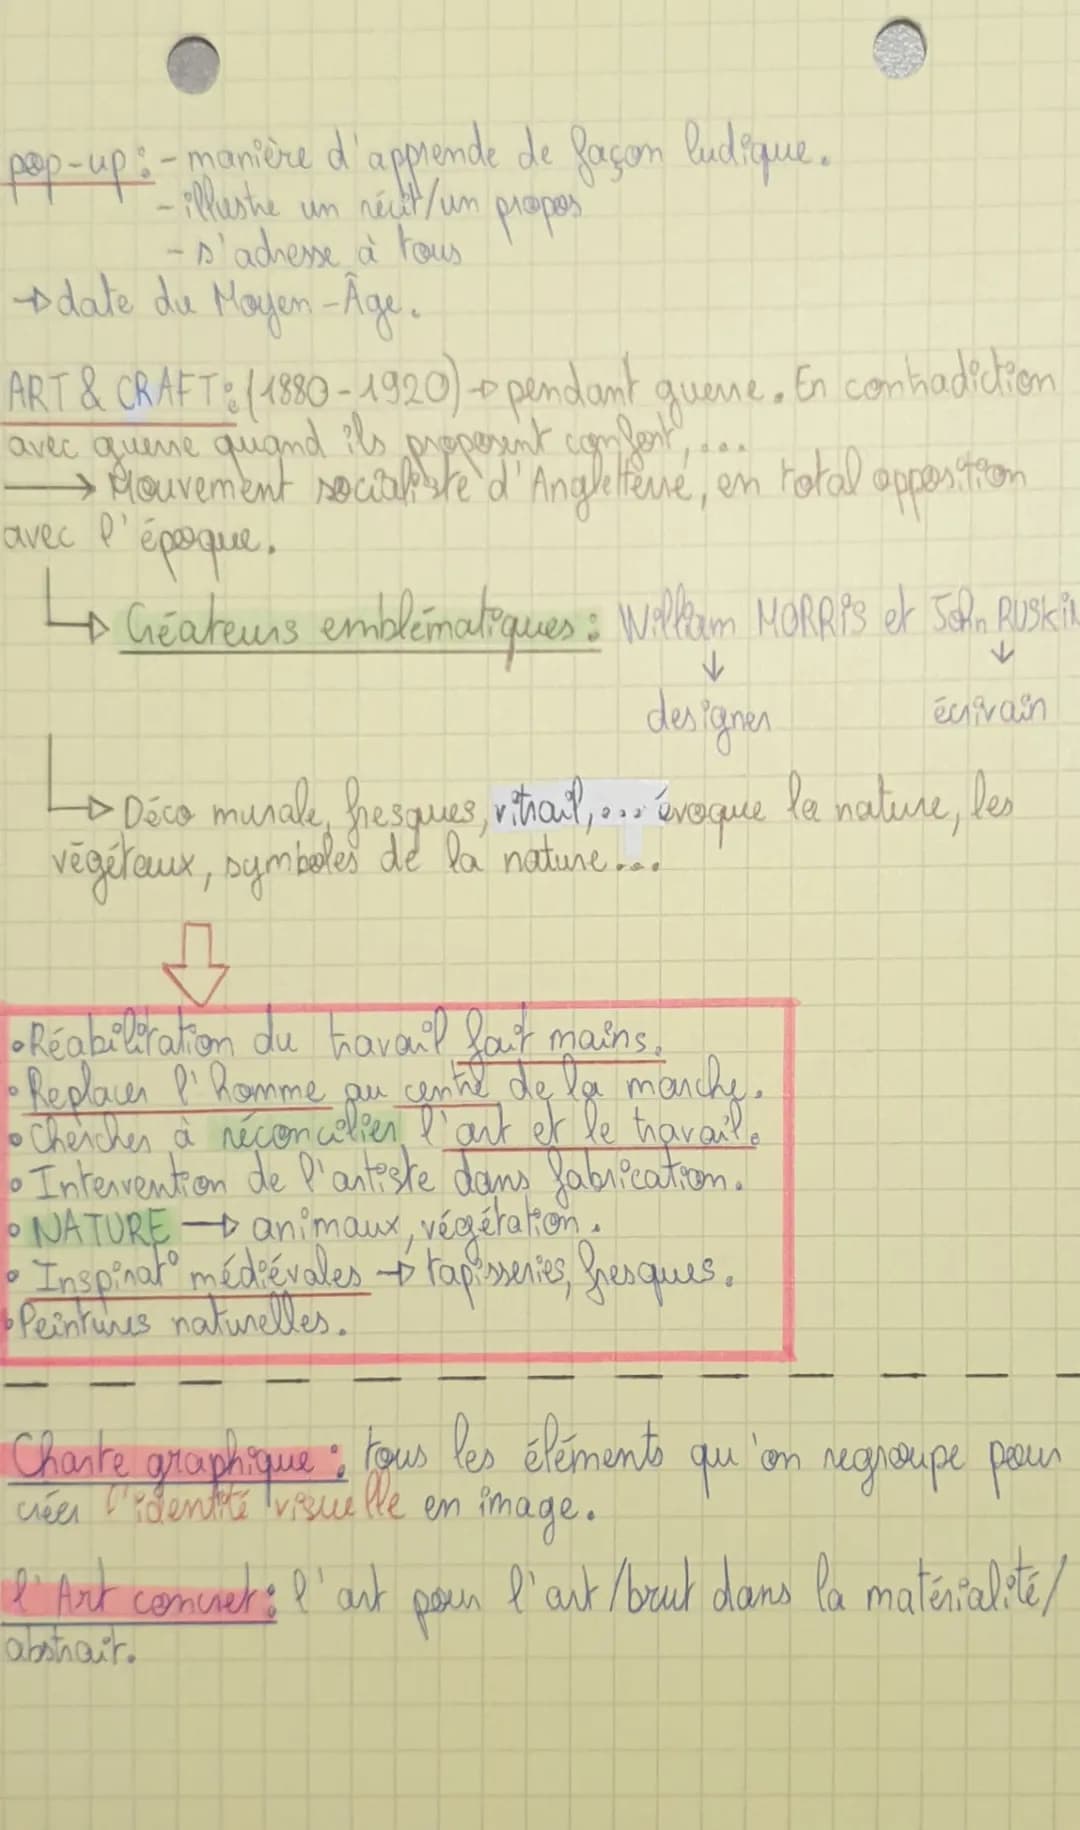 pop-up : - manière d'apprende de façon ludique.
- illustre un récit/un propos
- s'adresse à tous
→ date du Moyen-Âge.
ART & CRAFT : (1880-1920) → pendant guerre. En contradiction
avec guerre quand ils proposent confort, ...
→ Mouvement socialiste d'Angleterre, en total opposition
avec l'époque.
→ Créateurs emblématiques : William MORRIS et John RUSKIN
↓ ↓
designer écrivain
→ Déco murale, fresques, vitrail, ... évoque la nature, les
végétaux, symboles de la nature ...
• Réabilitation du travail fait mains.
• Replacer l'homme au centre de la marche.
• Chercher à réconcilier l'art et le travail.
• Intervention de l'artiste dans fabrication.
• NATURE → animaux, végétation.
• Inspirat° médiévales → tapisseries, fresques.
• Peintures naturelles.
Charte graphique : tous les éléments qu'on regroupe pour
créer l'identité visuelle en image.
l'Art concret : l'art pour l'art/brut dans la matérialité/
abstrait.